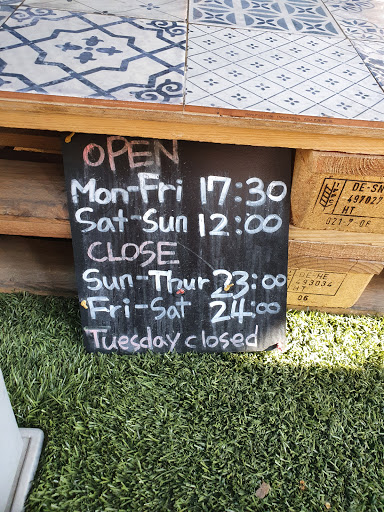 OPEN
Mon-Fri 17:30
Sat-Sun 12:00
CLOSE
Sun-Thur 23:00
Fri-Sat 24:00
Tuesday closed
HT
DE-HE
493034
HT
06